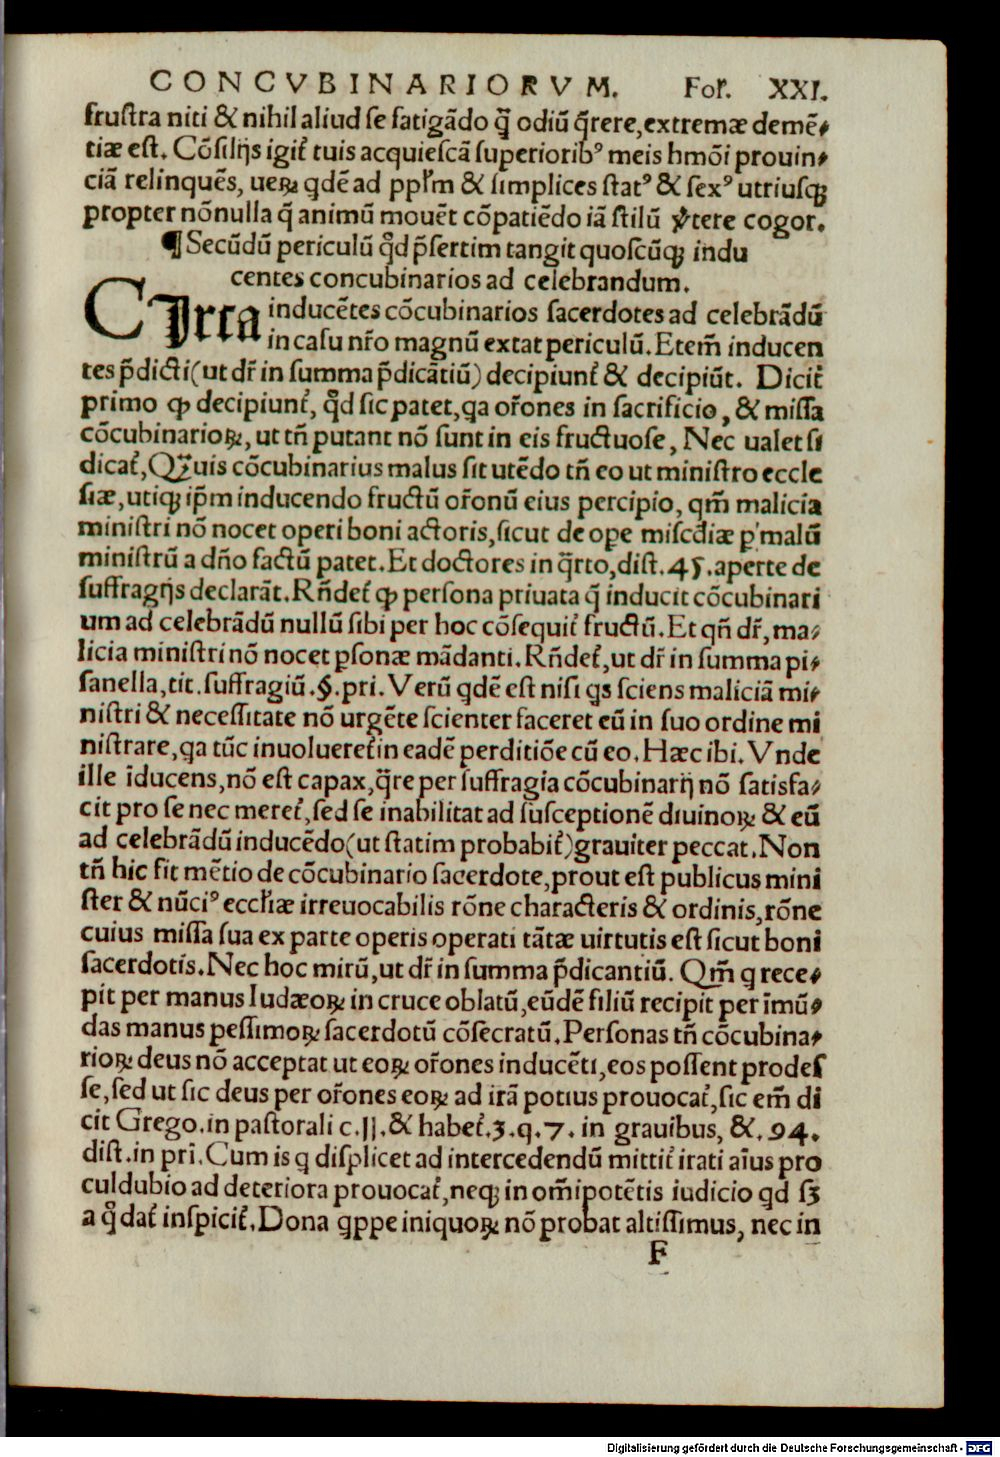 CONCVBINARIORVM. Fol. XXI.
frustra niti & nihil aliud se fatigādo q̃ odiū q̃rere,extremæ demē-
tiæ est. Cōsilijs igit̃ tuis acquiescā superiorib⁹ meis hmōi prouin-
ciā relinquēs, ueꝝ qdē ad ppl̃m & simplices stat⁹ & sex⁹ utriusqꝫ
propter nōnulla q̃ animū mouēt cōpatiēdo iā stilū ṽtere cogor.
¶ Secūdū periculū qd̃ p̃sertim tangit quoscūqꝫ indu
centes concubinarios ad celebrandum.
CIrca inducētes cōcubinarios sacerdotes ad celebrādū
in casu nr̃o magnū extat periculū. Etem̃ inducen
tes p̃dicti(ut dr̃ in summa p̃dicātiū) decipiunt̃ & decipiūt. Dicit̃
primo ꝙ decipiunt̃, qd̃ sic patet,qa or̃ones in sacrificio, & missa
cōcubinarioꝝ, ut tñ putant nō sunt in eis fructuose, Nec ualet si
dicat̃,Q̃uis cōcubinarius malus sit utēdo tñ eo ut ministro eccle
siæ,utiqꝫ ip̃m inducendo fructū or̃onū eius percipio, qm̃ malicia
ministri nō nocet operi boni actoris,sicut de ope miscd̃iæ p malū
ministrū a dño factū patet. Et doctores in q̃rto, dist.45.aperte de
suffragijs declarāt. Rñdet̃ ꝙ persona priuata q̃ inducit cōcubinari
um ad celebrādū nullū sibi per hoc cōsequit̃ fructū. Et qñ dr̃, ma-
licia ministri nō nocet psonæ mādanti. Rñdet̃, ut dr̃ in summa pi-
sanella, tit. suffragiū.§.pri. Verū qdē est nisi qs sciens maliciā mi-
nistri & necessitate nō urgēte scienter faceret eū in suo ordine mi
nistrare,qa tūc inuolueret̃ in eadē perditiōe cū eo. Hæc ibi. Vnde
ille īducens, nō est capax,q̃re per suffragia cōcubinarij nō satisfa-
cit pro se nec meret̃, sed se inabilitat ad susceptionē diuinoꝝ & eū
ad celebrādū inducēdo(ut statim probabit̃)grauiter peccat. Non
tñ hic fit mētio de cōcubinario sacerdote,prout est publicus mini
ster & nūci⁹ eccl̃iæ irreuocabilis rōne characteris & ordinis, rōne
cuius missa sua ex parte operis operati tātæ uirtutis est sicut boni
sacerdotis. Nec hoc mirū, ut dr̃ in summa p̃dicantiū. Qm̃ q rece-
pit per manus Iudæoꝝ in cruce oblatū,eūdē filiū recipit per īmū-
das manus pessimoꝝ sacerdotū cōsecratū. Personas tñ cōcubina-
rioꝝ deus nō acceptat ut eoꝝ or̃ones inducēti,eos possent prodes
se, sed ut sic deus per or̃ones eoꝝ ad irā potius prouocat̃, sic em̃ di
cit Grego. in pastorali c.II.& habet̃.3.q.7. in grauibus, &.94.
dist.in pri. Cum is q displicet ad intercedendū mittit̃ irati aīus pro
culdubio ad deteriora prouocat̃,neqꝫ in om̃ipotētis iudicio qd sꝫ
a q̃ dat̃ inspicit̃. Dona qppe iniquoꝝ nō probat altissimus, nec in
F
Digitalisierung gefördert durch die Deutsche Forschungsgemeinschaft - DFG